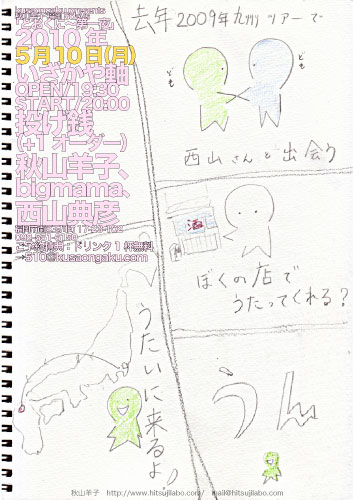 kusaongaku presents
2010年
5月10日(月)
いざかや画
OPEN/19:30
START/20:00
投げ銭
(+1オーダー)
秋山羊子、
bigmama、
西山典彦
→510@kusaongaku.com
去年2009年九州ツアーで
ども
ども
西山さんと出会う
酒
ぼくの店で
うたってくれる?
うん
うたいに来るよ♪
秋山羊子 http://www.hitsujilabo.com/ mail@hitsujilabo.com